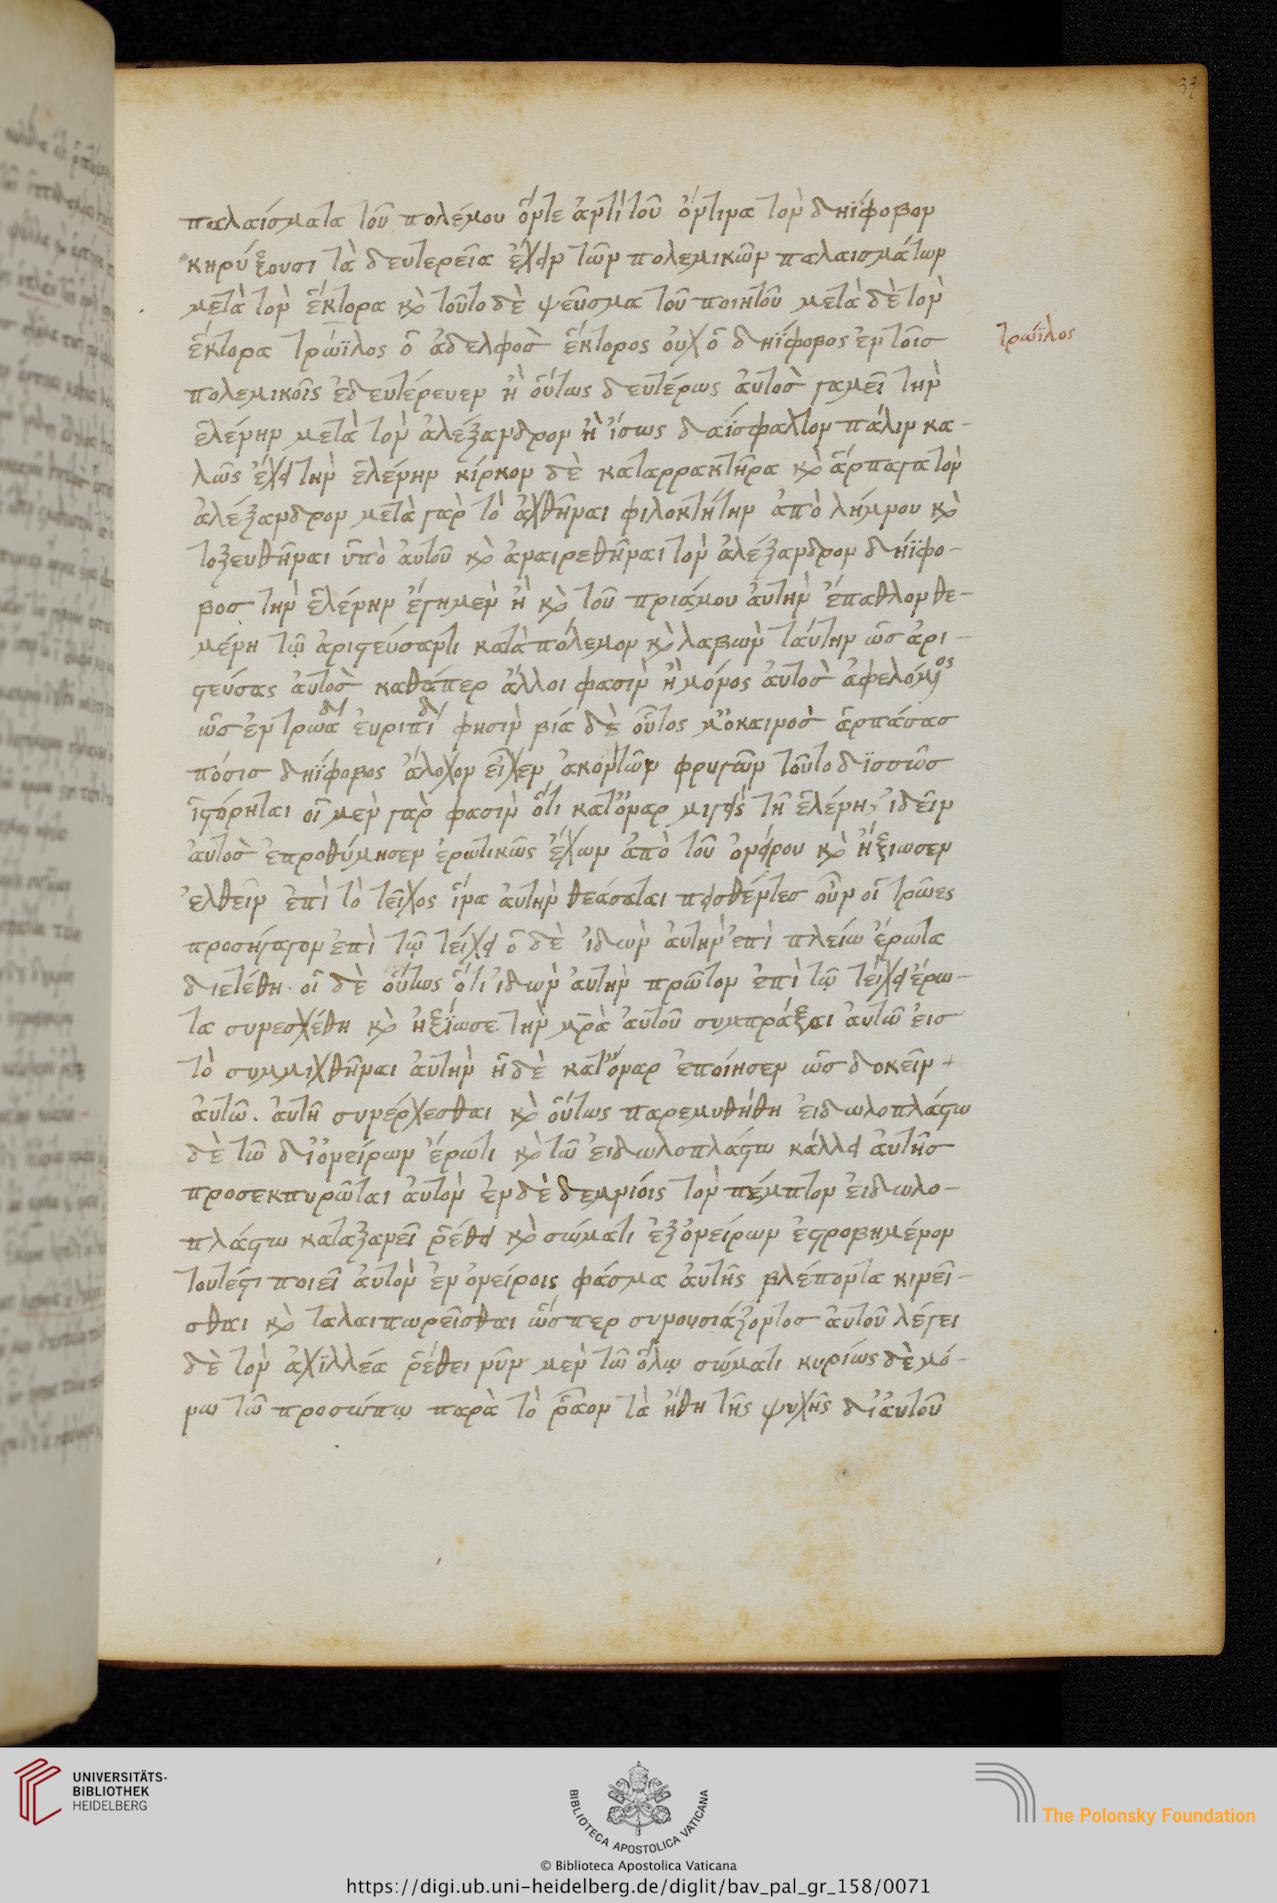 37
παλαίσματα τοῦ πολέμου ὅντε ἀντὶ τοῦ ὅντινα τὸν δηΐφοβον
κηρύξουσι τὰ δευτερεῖα ἔχειν τῶν πολεμικῶν παλαισμάτων
μετὰ τὸν ἕκτορα κ̀ τοῦτο δὲ ψεῦσμα τοῦ ποιητοῦ μετὰ δὲ τὸν
ἕκτορα τρώϊλος ὁ ἀδελφοσ ἕκτορος οὐχ ὁ δηΐφοβος ἐν τοῖσ
τρώϊλος
πολεμικοῖς ἐδευτέρευεν ἢ οὕτως δευτέρως αὐτοσ γαμεῖ τὴν
ἑλένην μετὰ τὸν ἀλέξανδρον ἢ ἴσως δαίσφαλτον πάλιν κα-
λῶς ἔχει τὴν ἑλένην κίρκον δὲ καταρρακτῆρα κ̀ ἅρπαγα τὸν
ἀλέξανδρον μετὰ γὰρ τὸ ἀχθῆναι φιλοκτήτην ἀπὸ λήμνου κ̀
τοξευθῆναι ὑπὸ αὐτοῦ κ̀ ἀναιρεθῆναι τὸν ἀλέξανδρον δηΐφο-
βοσ τὴν ἑλένην ἔγημεν ἢ κ̀ τοῦ πριάμου αὐτὴν ἔπαθλον θε-
μένη τῷ ἀριστεύσαντι κατὰ πόλεμον κ̀ λαβὼν ταύτην ὡσ ἀρι-
στεύσας αὐτοσ καθάπερ ἄλλοι φασὶν ἢ μόνος αὐτοσ ἀφελόμ̅ος
ὡσ ἐν τρωάδι εὐριπίδ φησὶν βιᾷ δὲ οὗτος μ᾽ ὁ καινοσ ἁρπάσασ
πόσισ δηΐφοβος ἄλοχον εἶχεν ἀκοντῶν φρυγῶν τοῦτο δισσῶσ
ἱστόρηται οἱ μὲν γὰρ φασὶν ὅτι κατ᾽ ὄναρ μιγεὶς τῇ ἑλένῃ, ἰδεῖν
αὐτοσ ἐπροθύμησεν ἐρωτικῶς ἔχων ἀπὸ τοῦ ὀνείρου κ̀ ἠξίωσεν
ἐλθεῖν ἐπὶ τὸ τεῖχος ἵνα αὐτὴν θεάσαται πεισθέντεσ οὖν οἱ τρῶες
προσήγαγον ἐπὶ τῷ τείχει ὁ δὲ ἰδὼν αὐτὴν ἐπὶ πλείω ἔρωτα
διετέθη. οἱ δὲ οὕτως ὅτι ἰδὼν αὐτὴν πρῶτον ἐπὶ τῷ τείχει ἔρω-
τα συνεσχέθη κ̀ ἠξίωσε τὴν μρ̅α αὐτοῦ συμπράξαι αὐτῶ εἰσ
τὸ συμμιχθῆναι αὐτὴν ἡ δὲ κατ᾽ ὄναρ ἐποίησεν ὡσ δοκεῖν +
αὐτῶ. αὐτῆ συνέρχεσθαι κ̀ οὕτως παρεμυθήθη εἰδωλοπλάστω
δὲ τῶ δι᾽ ὀνείρων ἔρωτι κ̀ τῶ εἰδωλοπλάστω κάλλει αὐτῆσ
προσεκπυρῶται αὐτὸν ἐν δὲ δεμνίοις τὸν πέμπτον εἰδωλο-
πλάστω καταξανεῖ ῥέθει κ̀ σώματι ἐξ ὀνείρων ἐστροβημένον
τουτέστι ποιεῖ αὐτὸν ἐν ὀνείροις φάσμα αὐτῆς βλέποντα κινεῖ-
σθαι κ̀ ταλαιπωρεῖσθαι ὥσπερ συνουσιάζοντοσ αὐτοῦ λέγει
δὲ τὸν ἀχιλλέα ῥέθει νῦν μὲν τῶ ὅλῳ σώματι κυρίως δὲ μό-
νω τῶ προσώπῳ παρὰ τὸ ῥᾶον τὰ ἤθη τῆς ψυχῆς δι᾽ αὐτοῦ
UNIVERSITÄTS-
BIBLIOTHEK
HEIDELBERG
BIBLIOTECA APOSTOLICA VATICANA
The Polonsky Foundation
© Biblioteca Apostolica Vaticana
https://digi.ub.uni-heidelberg.de/diglit/bav_pal_gr_158/0071